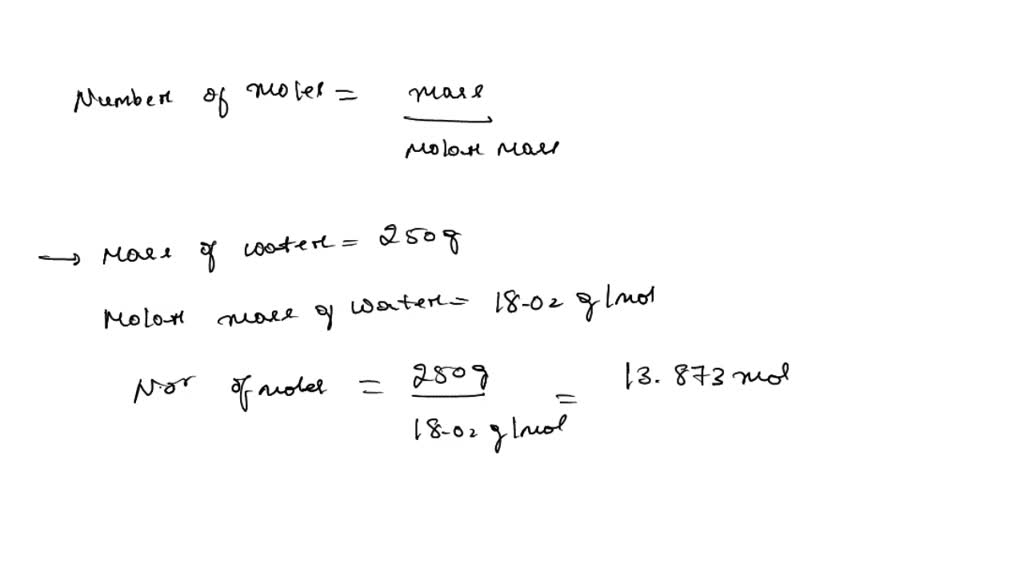 Number of moles = mass
molar mass
→ Mass of water = 250g
Molar mass of water = 18.02 g/mol
No of moles = 250g = 13.873 mol
18.02 g/mol